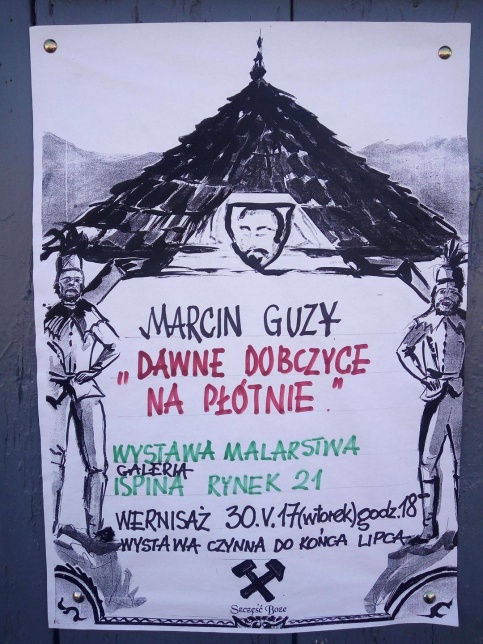 MARCIN GUZY
„DAWNE DOBCZYCE
NA PŁÓTNIE"
WYSTAWA MALARSTWA
GALERIA
ISPINA RYNEK 21
WERNISAŻ 30.V.17(wtorek)godz:18-
WYSTAWA CZYNNA DO KOŃCA LIPCA
Szczęść Boże